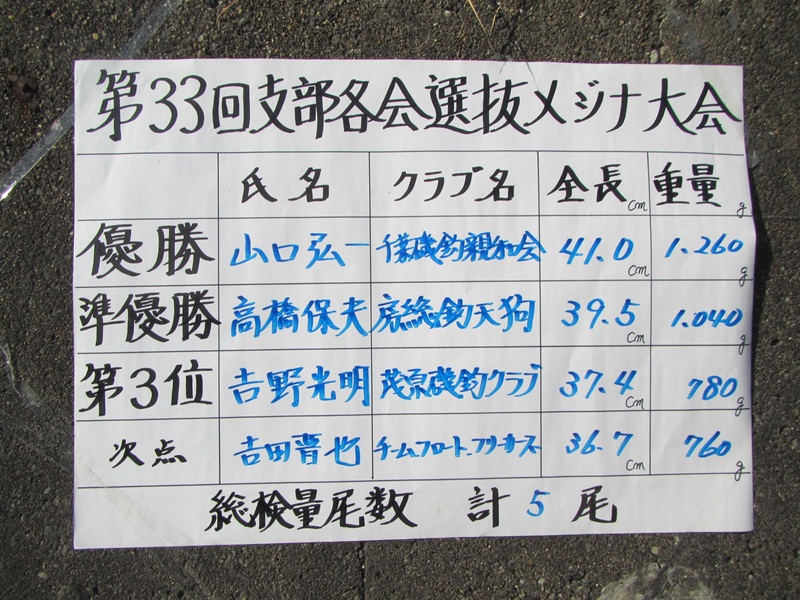 第33回支部各会選抜メジナ大会
氏名 クラブ名 全長cm 重量g
優勝 山口弘一 千葉磯釣親和会 41.0cm 1.260g
準優勝 高橋保夫 房総釣天狗 39.5cm 1.040g
第3位 吉野光明 茂原磯釣クラブ 37.4cm 780g
次点 吉田晋也 チームフロート 36.7cm 760g
総検量尾数 計5尾